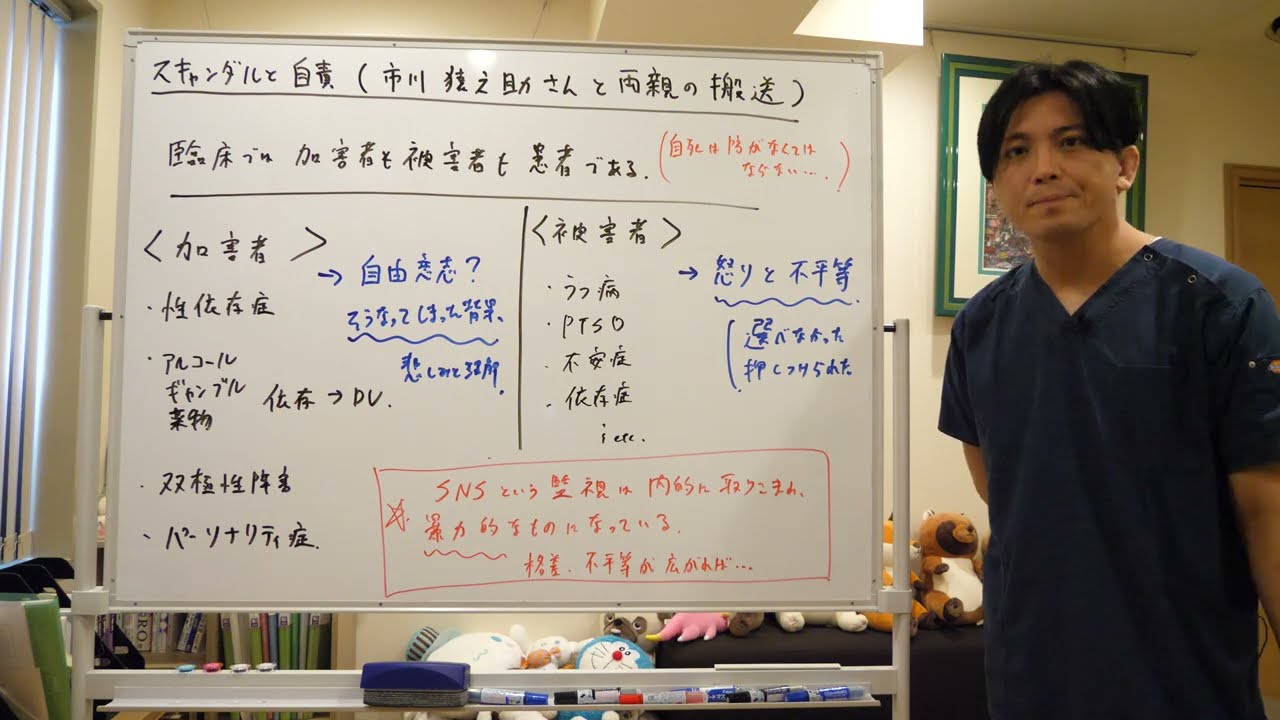 スキャンダルと自責(市川猿之助さんと両親の搬送)
臨床では加害者も被害者も患者である.
(自死は防がなくては
ならない….)
〈加害者〉
・性依存症
・アルコール
ギャンブル
薬物
依存→DV.
・双極性障害
・パーソナリティ症.
→自由意志?
そうなってしまった背景、
悲しみと理解
〈被害者〉
・うつ病
・PTSD
・不安症
・依存症
etc.
→怒りと不平等.
選べなかった
押しつけられた
SNSという監視は内的に取りこまれ、
暴力的なものになっている.
格差、不平等が広がれば…